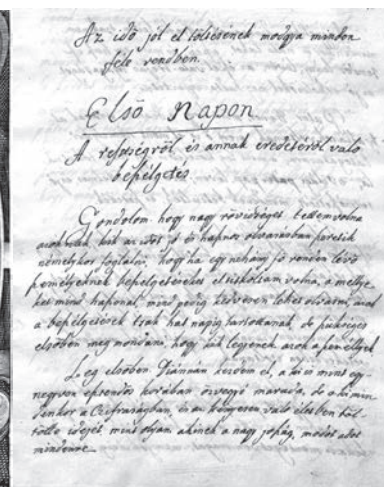 Az idö jól el töltésének modgya minden
féle rendben.
Elsö Napon
A restségröl és annak eredetéröl való
beszélgetés
Gondolom hogy nagy rövidséget tettem volna
azoknak, kik az idöt jó és hasznos olvasásban szeretik
némelykor foglalni, hogy ha egy nehány jó renden lévö
személyeknek beszélgetéseket el titkoltam volna, a mellye
ket mind haszonal, mind pedig kedvesen lehet olvasni, azok
a beszélgetések tsak hat napig tartottanak, de szükséges
elsöben meg mondani, hogy kik legyenek azok a személlyek
Leg elsöben Diánnán kezdem el, a ki is mint egy
negyven esztendös korában özvegyé marada, de a ki min
denkor a Czifraságban, és az kényesen való élésben töl-
tötte idejét, mint olyan akinek a nagy joszág, modot adot
mindenre